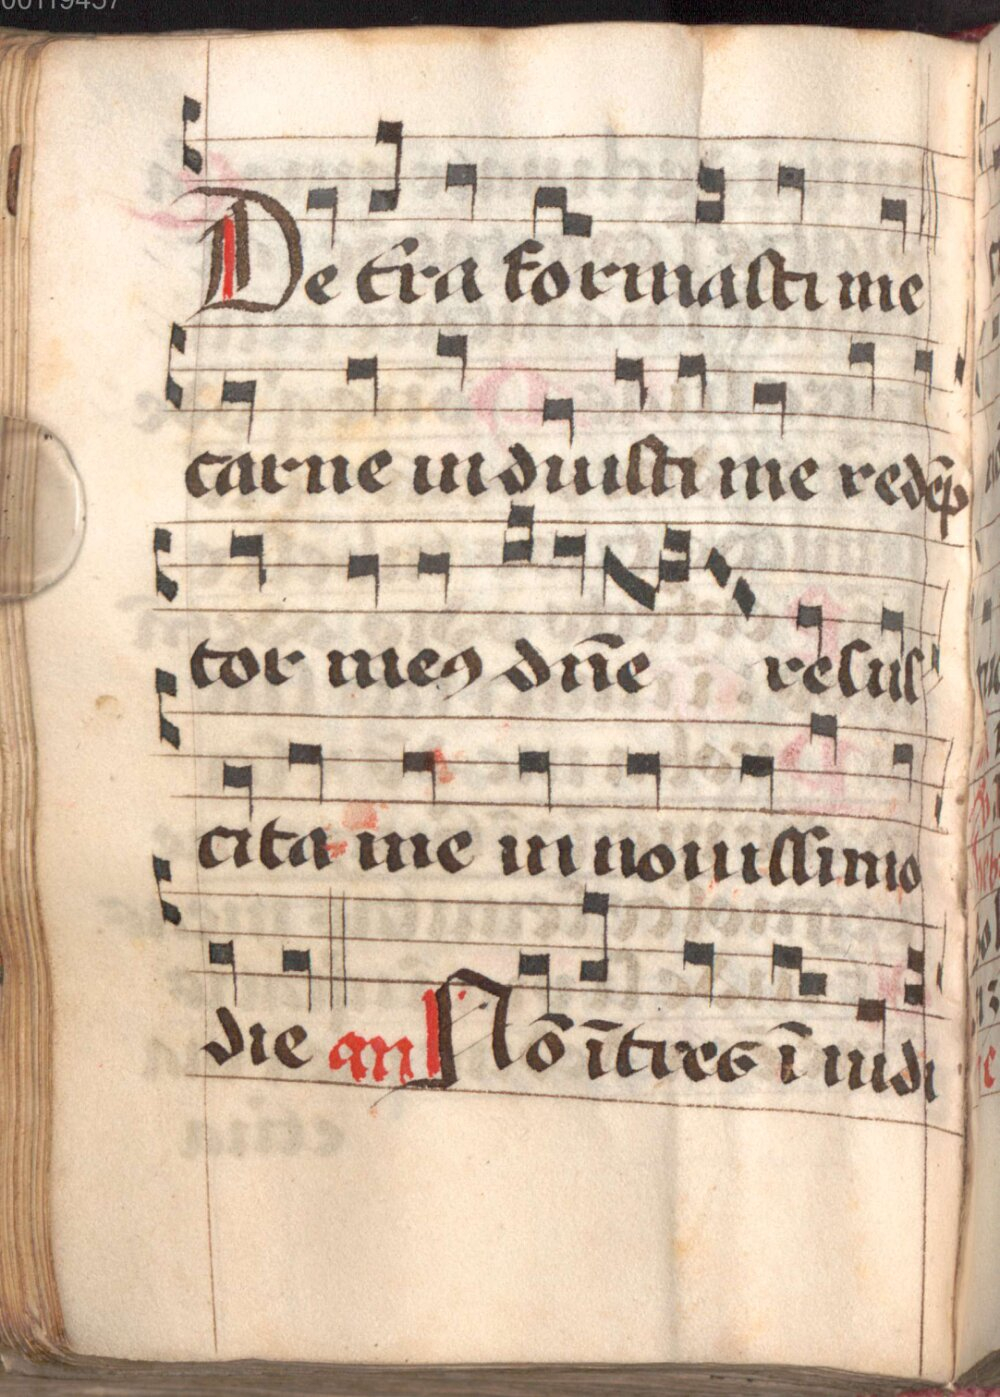 00119457
De tr̄a formasti me
carne induisti me redēp
tor meꝰ dn̄e resus
cita me in nouissimo
die an Nō ītres ī iudi